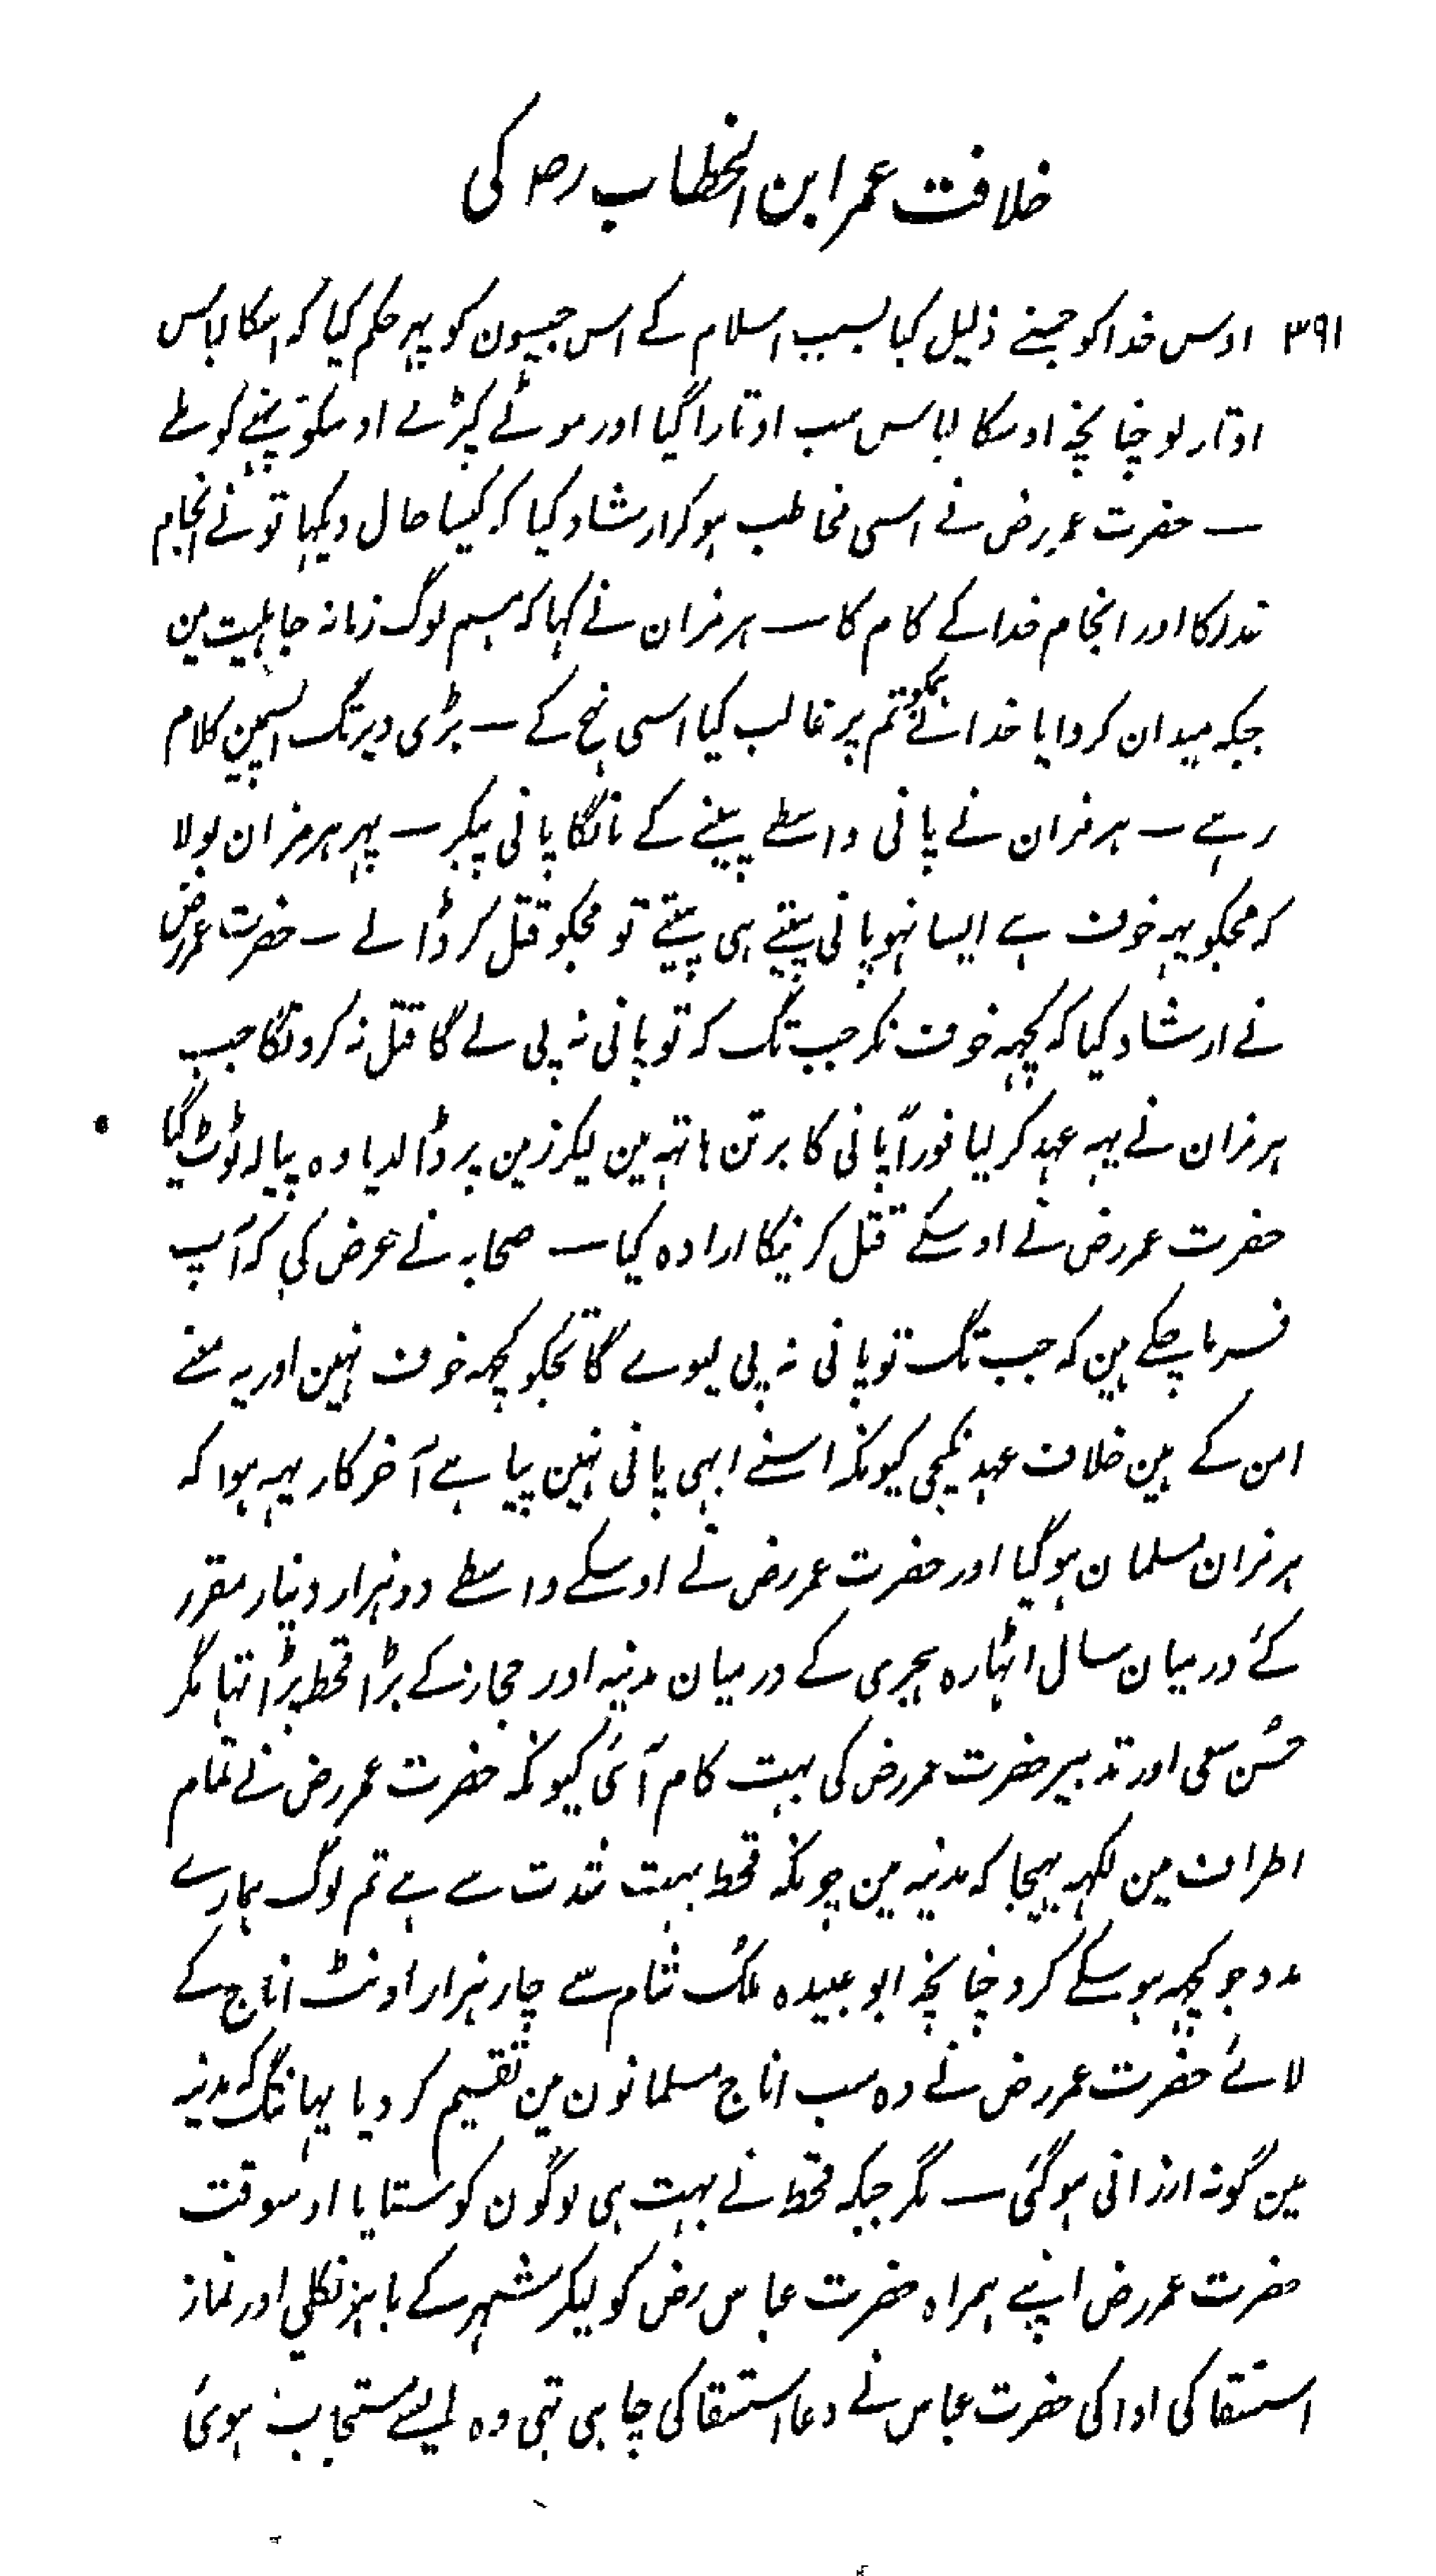 خلافت عمر ابن الخطاب رض کی
۳۹۱ اوس خدا کو جسنے ذلیل کیا بسبب اسلام کے اس جیسون کو یہہ حکم کیا کہ اسکا لباس
اوتار لو چنانچہ اوسکا لباس سب اوتارا گیا اور موٹے کپڑے اوسکو پہننے کو ملے
ــ حضرت عمر رض نے اسی مخاطب ہو کر ارشاد کیا کہ کیسا حال دیکہا تو نے انجام
غدر کا اور انجام خدا کے کام کا ــ ہرمزان نے کہا کہ ہم لوگ زمانہ جاہلیت مین
جبکہ میدان کر دایا خدا نے ہمکو تم پر غالب کیا اسی نہج کے ــ بڑی دیر تگ اسمین کلام
رہے ــ ہرمزان نے پانی واسطے پینے کے مانگا پانی پیکر ــ پہر ہرمزان بولا
کہ مجکو یہہ خوف ہے ایسا نہو پانی پیتے ہی پیتے تو مجکو قتل کر ڈالے ــ حضرت عمر رض
نے ارشاد کیا کہ کچہہ خوف نکر جب تگ کہ تو پانی نہ پی لے گا قتل نہ کرونگا جب
ہرمزان نے یہہ عہد کر لیا فوراً پانی کا برتن ہاتہہ مین لیکر زمین پر ڈالدیا وہ پیالہ ٹوٹ گیا
حضرت عمر رض نے اوسکے قتل کرنیکا ارادہ کیا ــ صحابہ نے عرض کی کہ آپ
فرما چکے ہین کہ جب تگ تو پانی نہ پی لیوے گا تجکو کچہہ خوف نہین اور یہ معنے
امن کے ہین خلاف عہد نکیجی کیونکہ اسنے ابہی پانی نہین پیا ہے آخر کار یہہ ہوا کہ
ہرمزان مسلمان ہو گیا اور حضرت عمر رض نے اوسکے واسطے دو ہزار دینار مقرر
کئے درمیان سال اٹہارہ ہجری کے درمیان مدینہ اور حجاز کے بڑا قحط پڑا تہا مگر
حُسن سعی اور تدبیر حضرت عمر رض کی بہت کام آئی کیونکہ حضرت عمر رض نے تمام
اطراف مین لکہہ بہیجا کہ مدینہ مین چونکہ قحط بہت شدت سے ہے تم لوگ ہمارے
مدد جو کچہہ ہو سکے کرو چنانچہ ابو عبیدہ ملک شام سے چار ہزار اونٹ اناج کے
لائے حضرت عمر رض نے وہ سب اناج مسلمانون مین تقسیم کر دیا یہانتگ کہ مدینہ
مین گونہ ارزانی ہو گئی ــ مگر جبکہ قحط نے بہت ہی لوگون کو ستایا اوسوقت
حضرت عمر رض اپنے ہمراہ حضرت عباس رض کو لیکر شہر کے باہر نکلی اور نماز
استسقا کی ادا کی حضرت عباس نے دعا استسقا کی چاہی تہی وہ ایسے مستجاب ہوئی